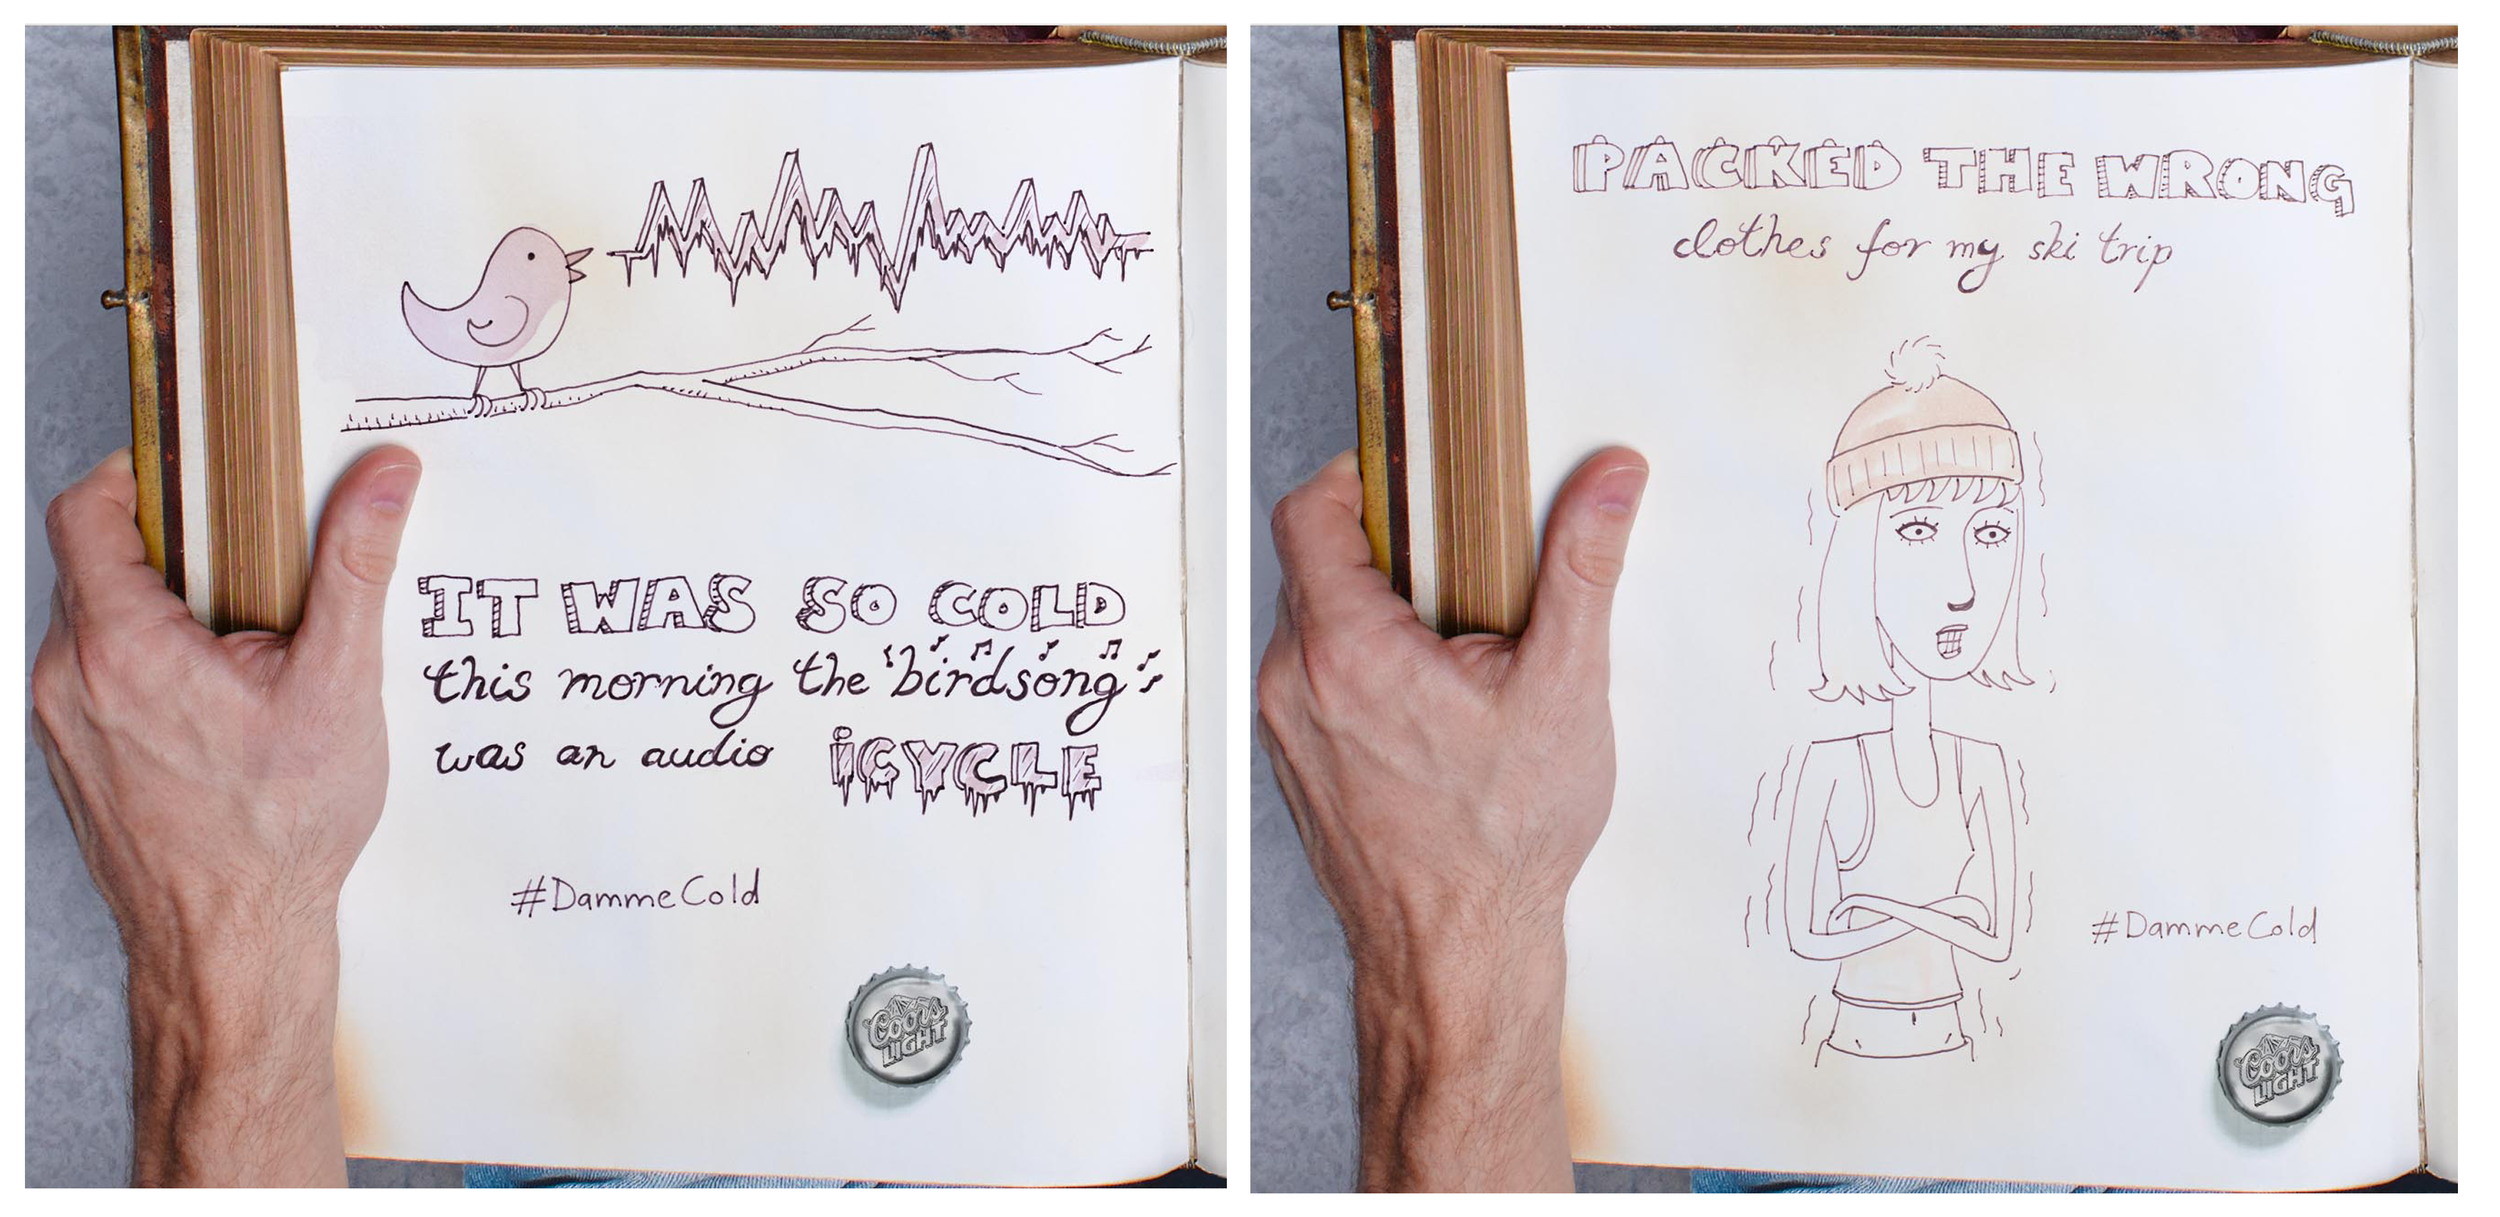 IT WAS SO COLD
this morning the 'birdsong'
was an audio iCYCLE
#DammeCold
Coors
LIGHT
PACKED THE WRONG
clothes for my ski trip
#DammeCold
Coors
LIGHT